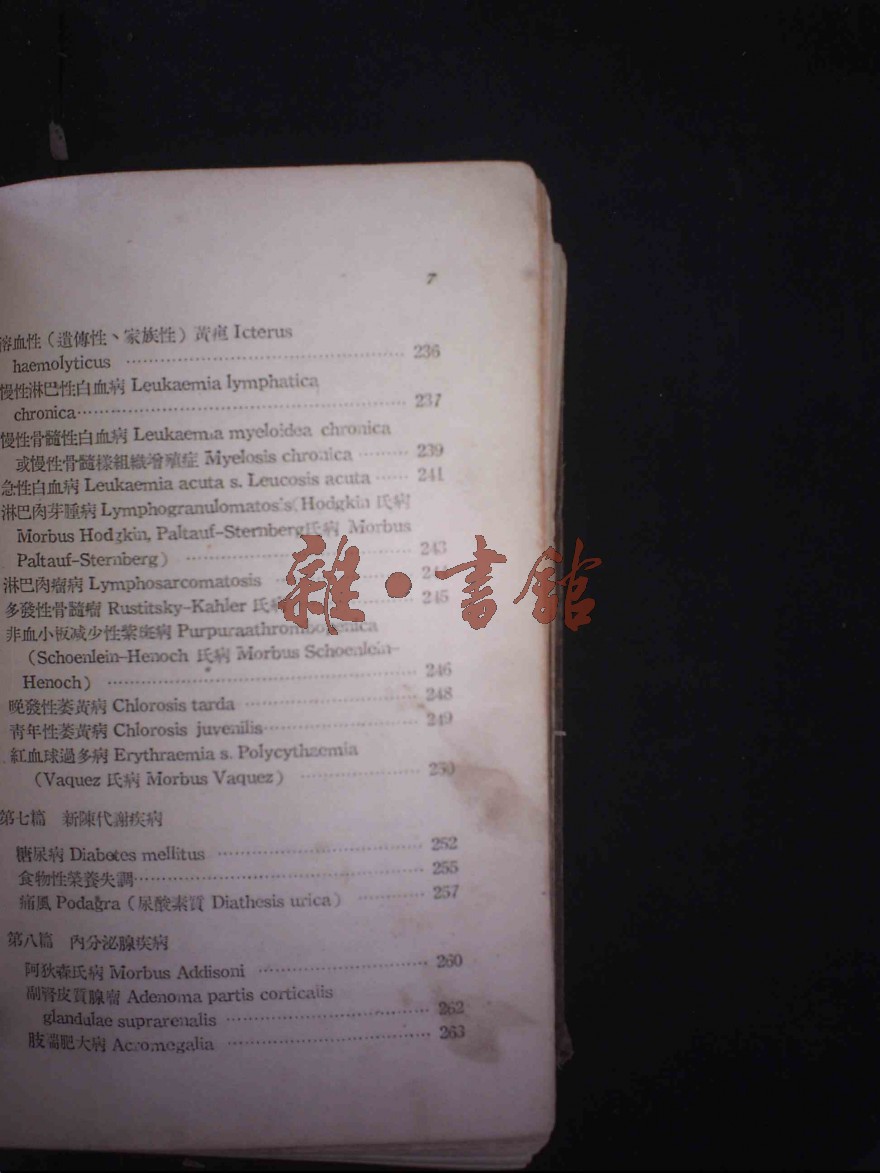 7
溶血性（遺傳性、家族性）黃疸 Icterus
haemolyticus ………… 236
慢性淋巴性白血病 Leukaemia lymphatica
chronica………… 237
慢性骨髓性白血病 Leukaemia myeloidea chronica
或慢性骨髓樣組織增殖症 Myelosis chronica ……… 239
急性白血病 Leukaemia acuta s. Leucosis acuta …… 241
淋巴肉芽腫病 Lymphogranulomatosis(Hodgkin 氏病
Morbus Hodgkin, Paltauf-Sternberg氏病 Morbus
Paltauf-Sternberg） ………… 243
淋巴肉瘤病 Lymphosarcomatosis ………… 244
多發性骨髓瘤 Rustitsky-Kahler 氏病 ………… 245
非血小板减少性紫斑病 Purpuraathrombopenica
（Schoenlein-Henoch 氏病 Morbus Schoenlein-
Henoch） ………… 246
晚發性萎黃病 Chlorosis tarda ………… 248
青年性萎黃病 Chlorosis juvenilis………… 249
紅血球過多病 Erythraemia s. Polycythaemia
（Vaquez 氏病 Morbus Vaquez） ………… 250
第七篇 新陳代謝疾病
糖尿病 Diabetes mellitus ………… 252
食物性榮養失調………… 255
痛風 Podagra（尿酸素質 Diathesis urica） ………… 257
第八篇 內分泌腺疾病
阿狄森氏病 Morbus Addisoni ………… 260
副腎皮質腺瘤 Adenoma partis corticalis
glandulae suprarenalis ………… 262
肢端肥大病 Acromegalia ………… 263
雜·書館